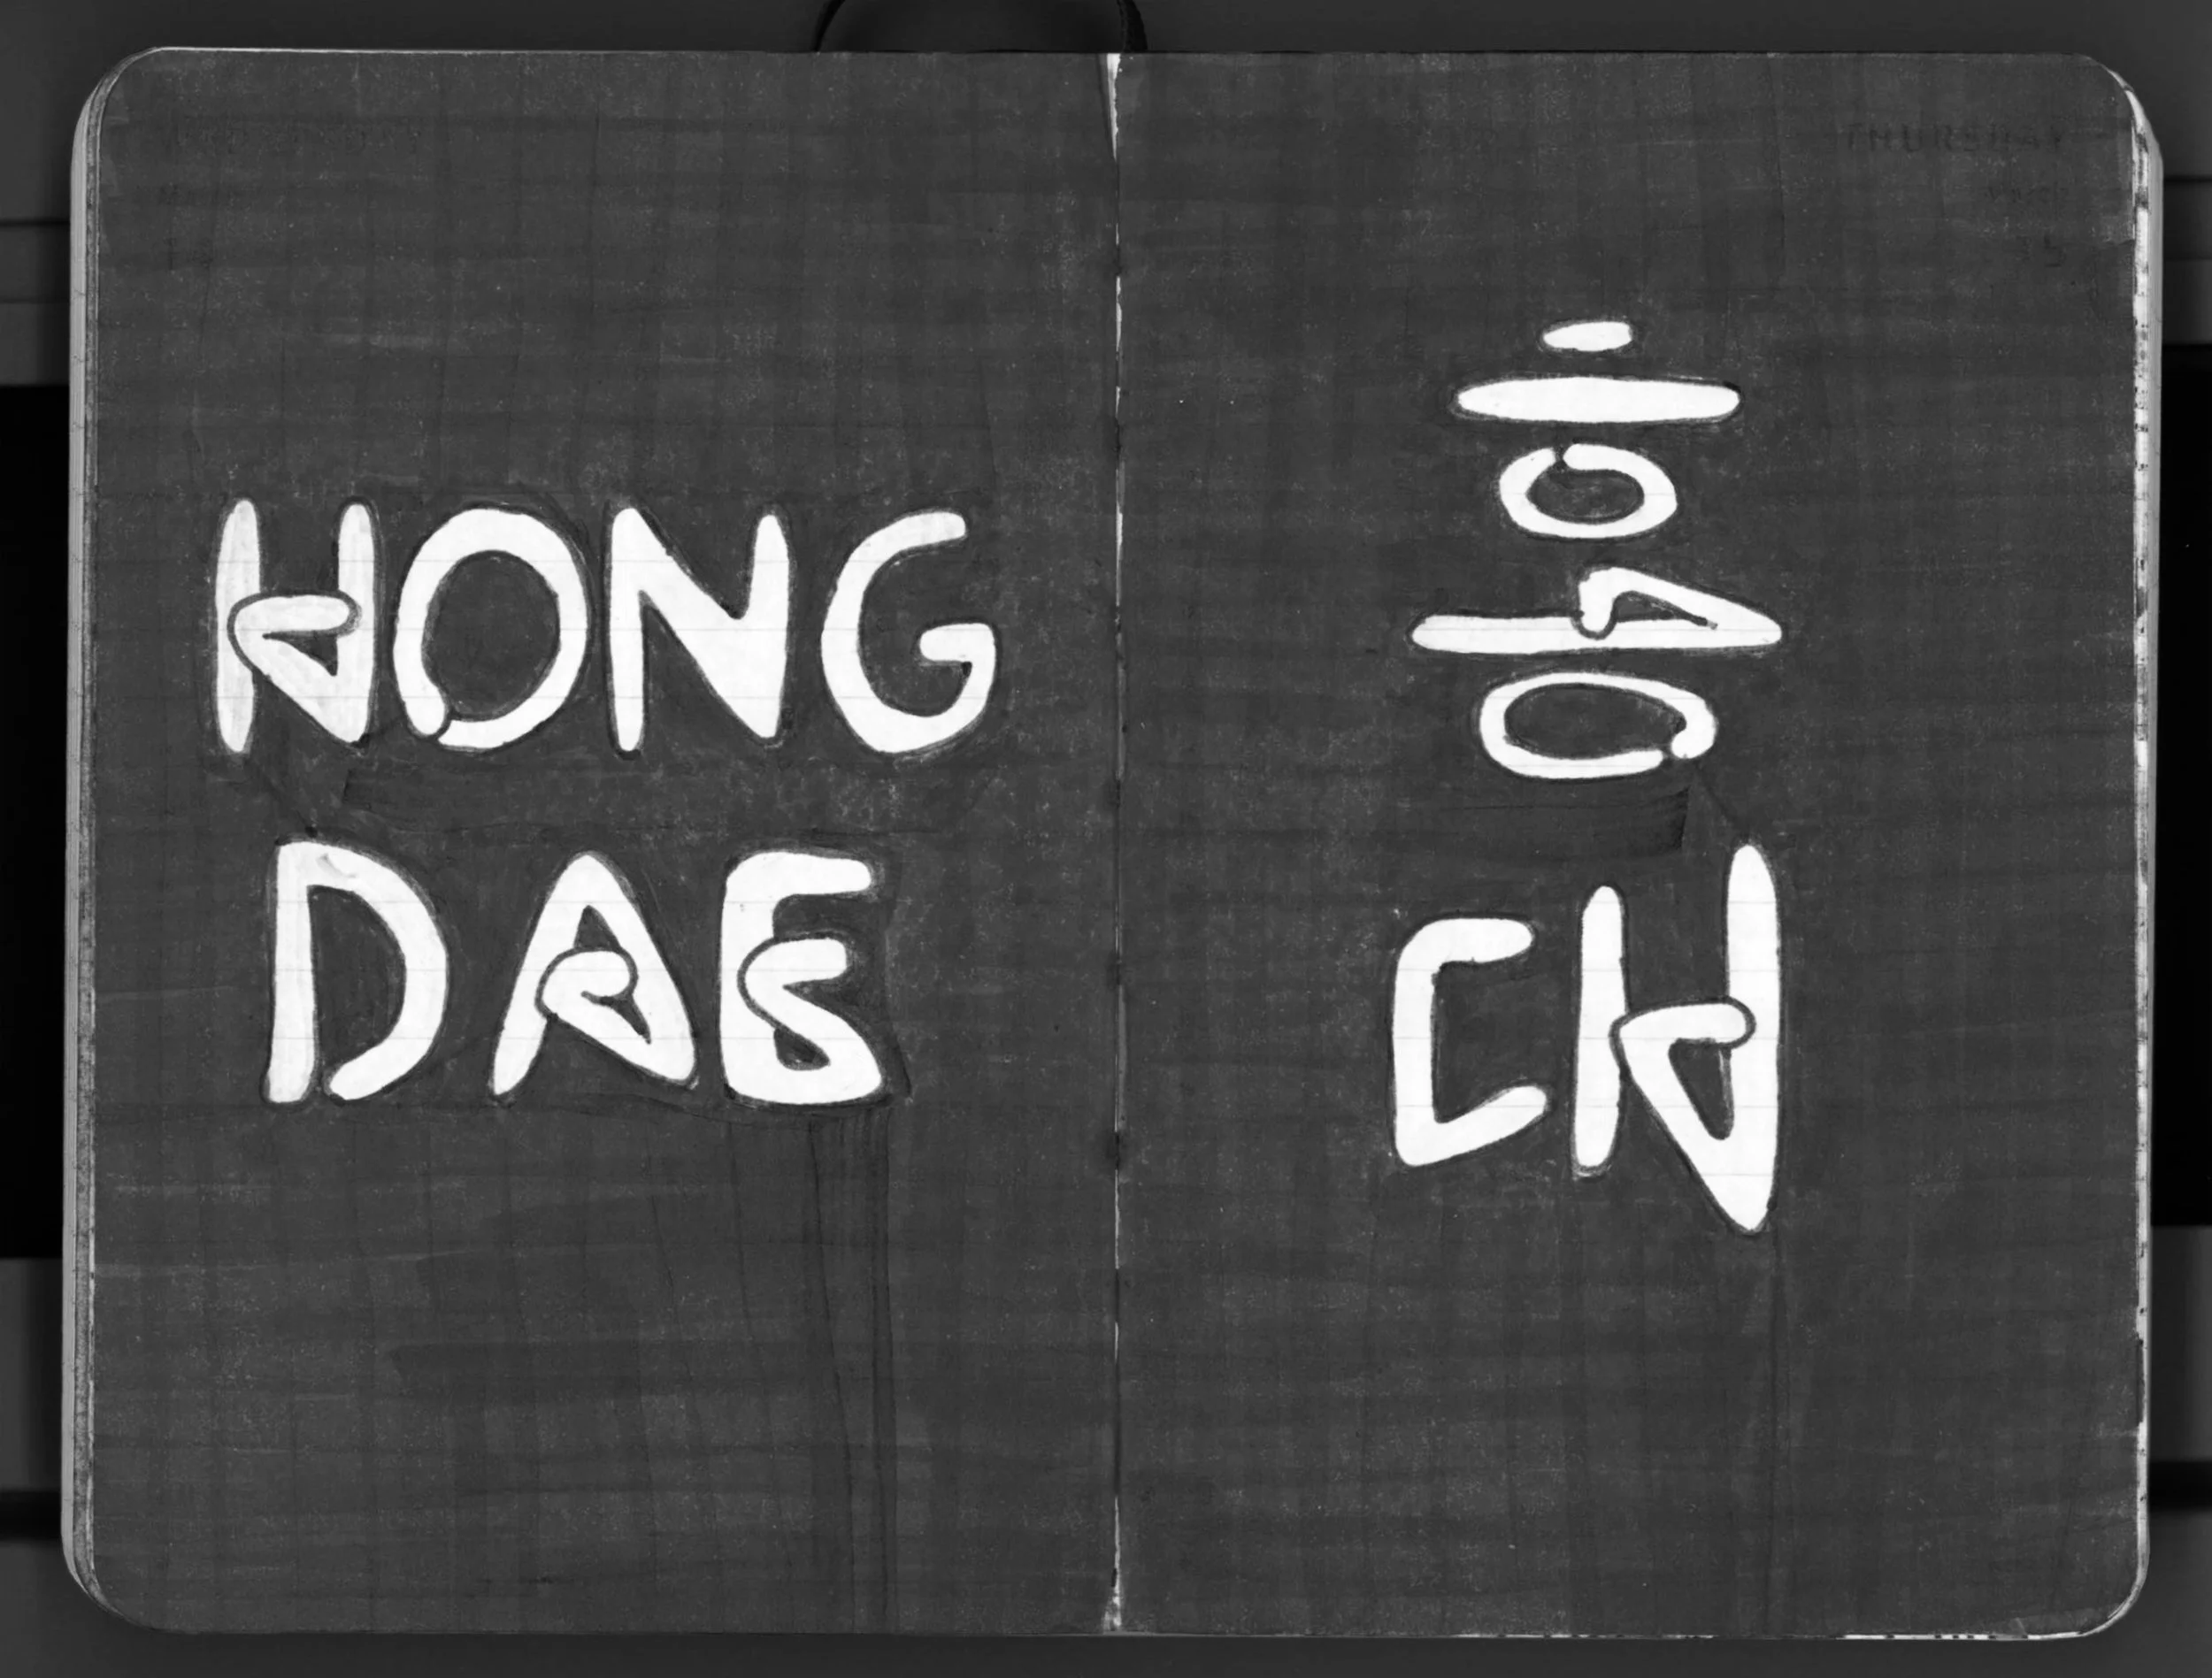 HONG
DAE
홍
대
THURSDAY